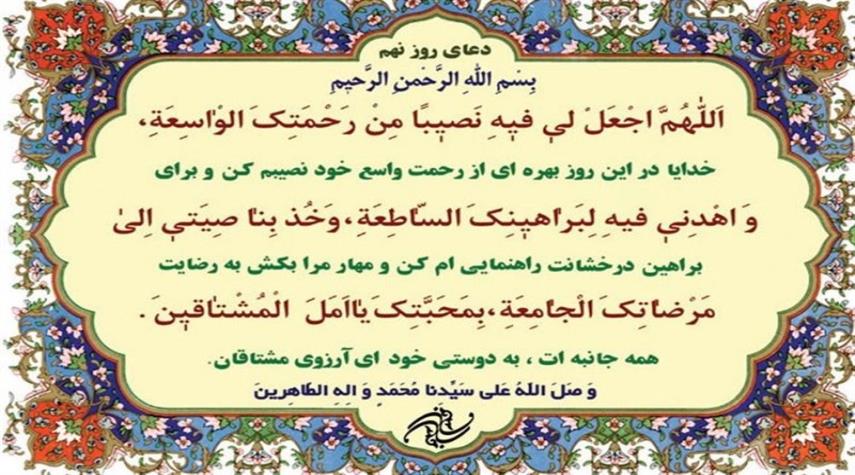 دعای روز نهم
بِسْمِ اللهِ الرَّحْمنِ الرَّحیمِ
اَللّهُمَّ اجْعَلْ لی فیهِ نَصیبًا مِنْ رَحْمَتِکَ الْواسِعَةِ،
خدایا در این روز بهره ای از رحمت واسع خود نصیبم کن و برای
وَ اهْدِنی فیهِ لِبَراهینِکَ السّاطِعَةِ،وَخُذ بِنا صِیَتی اِلیٰ
براهین درخشانت راهنمایی ام کن و مهار مرا بکش به رضایت
مَرْضاتِکَ الْجامِعَةِ،بِمَحَبَّتِکَ یااَمَلَ الْمُشْتاقینَ.
همه جانبه ات ، به دوستی خود ای آرزوی مشتاقان.
وَ صَلَ اللهُ عَلی سَیِّدِنا مُحَمَدٍ وَ الِهِ الطّاهِرینَ